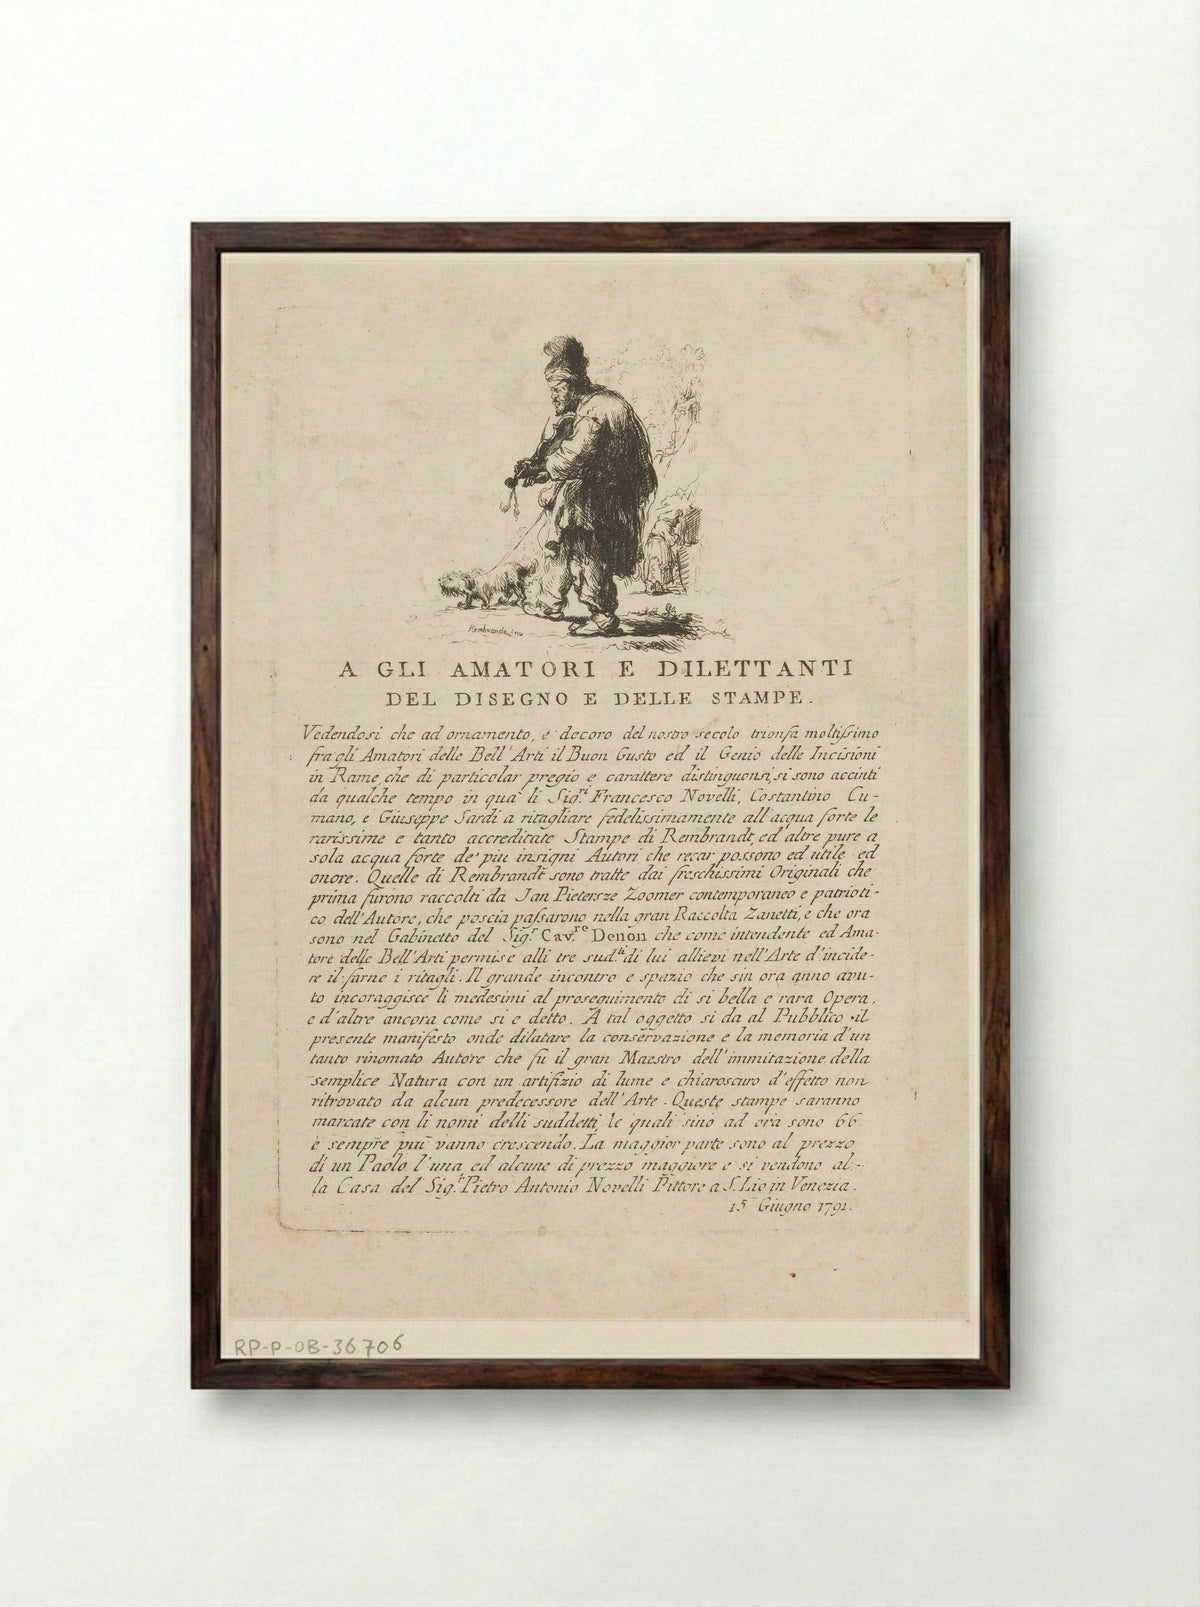 Rembrandt inv
A GLI AMATORI E DILETTANTI
DEL DISEGNO E DELLE STAMPE.
Vedendosi che ad ornamento, e decoro del nostro secolo trionfa moltiſsimo
fra gli Amatori delle Bell' Arti il Buon Gusto ed il Genio delle Incisioni
in Rame, che di particolar pregio e carattere distinguonsi, si sono accinti
da qualche tempo in quà li Sig.ri Francesco Novelli, Costantino Cu-
mano, e Giuseppe Sardi a ritagliare fedelissimamente all'acqua forte le
rarissime e tanto accreditate Stampe di Rembrandt, ed altre pure a
sola acqua forte de' piu insigni Autori che recar possono ed utile ed
onore. Quelle di Rembrandt sono tratte dai freschissimi Originali che
prima furono raccolti da Jan Pietersze Zoomer contemporaneo e patrioti-
co dell'Autore, che poscia paſsarono nella gran Raccolta Zanetti, e che ora
sono nel Gabinetto del Sig.r Cav.re Denon che come intendente ed Ama-
tore delle Bell'Arti permise alli tre sud.ti di lui allievi nell'Arte d'incide-
re il farne i ritagli. Il grande incontro e spazio che sin ora anno avu-
to incoraggisce li medesimi al proseguimento di si bella e rara Opera,
e d'altre ancora come si e detto. A tal oggetto si da al Pubblico il
presente manifesto onde dilatare la conservazione e la memoria d'un
tanto rinomato Autore che fù il gran Maestro dell'immitazione della
semplice Natura con un artifizio di lume e chiaroscuro d'effetto non
ritrovato da alcun predecessore dell'Arte. Queste stampe saranno
marcate con li nomi delli suddetti, le quali sino ad ora sono 66
e sempre piu vanno crescendo. La maggior parte sono al prezzo
di un Paolo l'una ed alcune di prezzo maggiore e si vendono al-
la Casa del Sig.r Pietro Antonio Novelli Pittore a S. Lio in Venezia.
15 Giugno 1791.
RP-P-OB-36.706